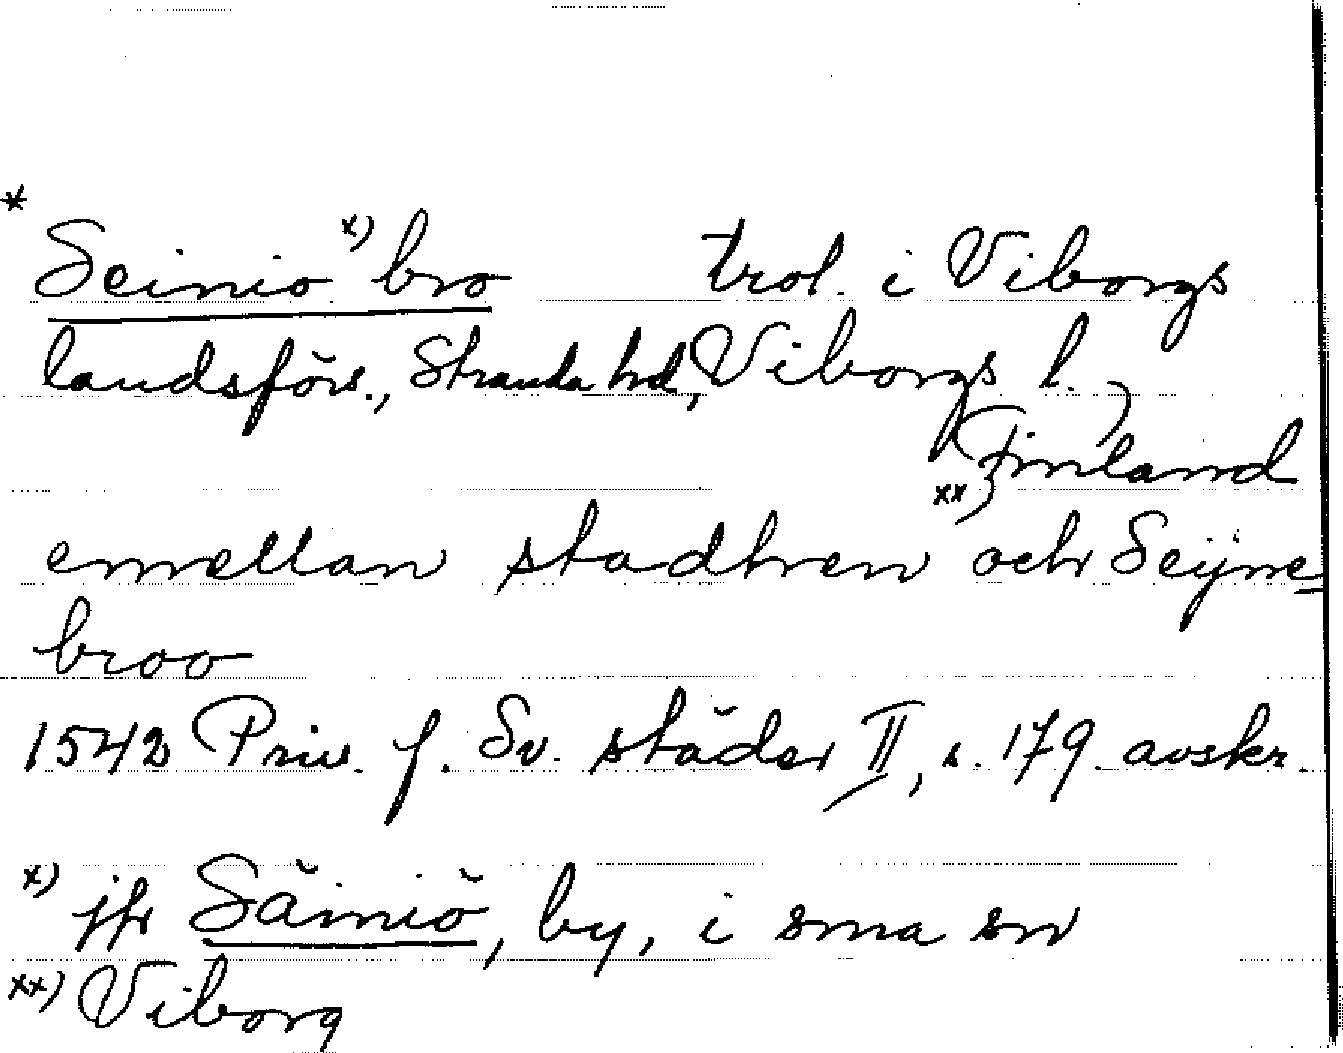 *
Seinio x) bro trol. i Viborgs
landsförs., Stranda hd, Viborgs l.
(Finland)
emellan stadhren xx) och Seijne=
broo
1542 Priv. f. Sv. städer II, s. 179 avskr.
x) jfr Säiniö, by, i sma sn
xx) Viborg